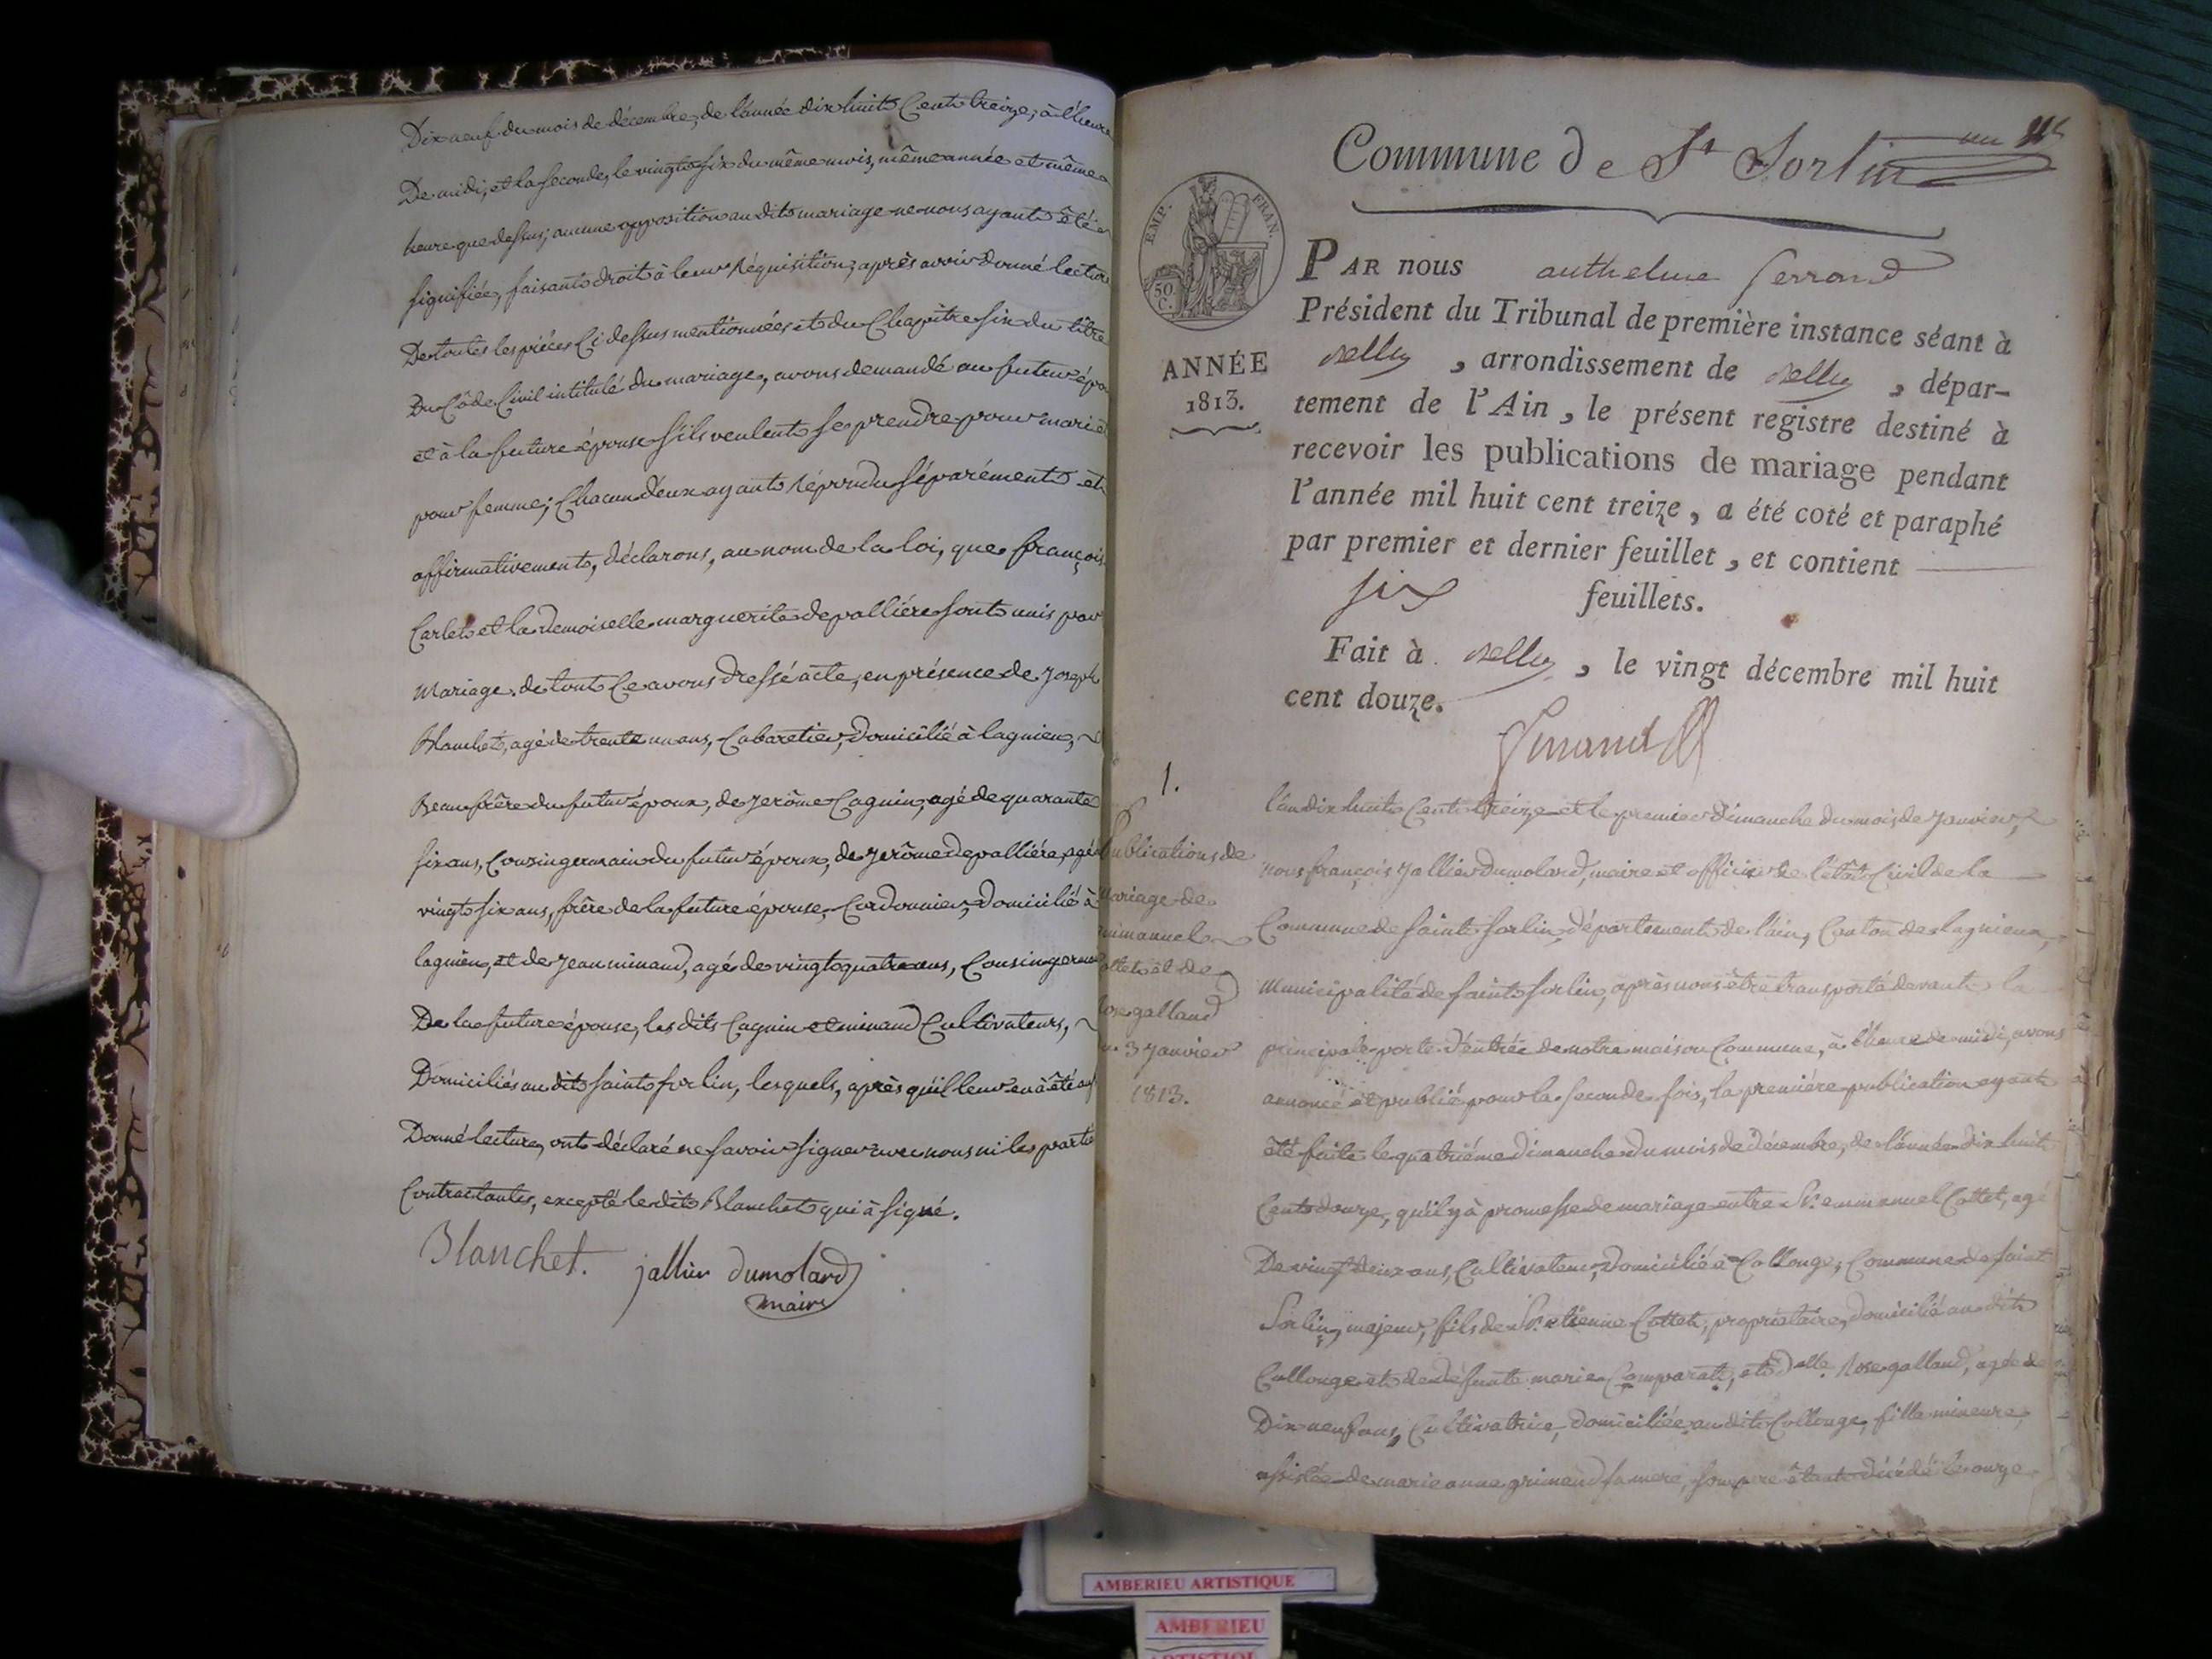 Dix neuf du mois de décembre, de l'année dix huit Cent treize, à l'heure
De midi, et la seconde, le vingt six du même mois, même année et même
heure que dessus; aucune opposition au dit mariage ne nous ayant été
signifiée, faisant droit à leur Réquisition, après avoir donné lecture
De toutes les pièces Ci dessus mentionnées et du Chapitre six du titre
Du Côde Civil intitulé du mariage, avons demandé au futur épo
et à la future épouse s'ils veulent se prendre pour mari e
pour femme; Chacun d'eux ayant Répondu séparément et
affirmativement, déclarons, au nom de la loi, que françois
Carlet et la Demoiselle marguerite depalliére sont unis par
Mariage. de tout Ce avons dressé acte, en présence de Joseph
Blanchet, agé de trente un ans, Cabaretier, Domicilié à lagnieu,
Beaufrère du futur époux, de Jerôme Cagnin, agé de quarante
six ans, Cousin germain du futur époux, de Jerôme Depalliére, agé
vingt six ans, frère de la future épouse, Cordonnier, Domicilié à
lagnieu, et de Jean minand, agé de vingt quatre ans, Cousin germa
De la future épouse, les dits Cagnin et minand Cultivateurs,
Domiciliés au dit saint sorlin, lesquels, après qu'il leur en à été
Donné lecture, ont déclaré ne savoir signer avec nous ni les partie
Contractantes, excepté le dit Blanchet qui à signé.
Blanchet. jallier dumolard
maire
Commune de St Sorlin
EMP. FRAN.
50 C.
ANNÉE
1813.
PAR nous anthelme ferrand
Président du Tribunal de première instance séant à
Belley, arrondissement de Belley, dépar-
tement de l'Ain, le présent registre destiné à
recevoir les publications de mariage pendant
l'année mil huit cent treize, a été coté et paraphé
par premier et dernier feuillet, et contient
six feuillets.
Fait à Belley, le vingt décembre mil huit
cent douze.
1.
Publications de
Mariage de
mmanuel
ottet et de
rose galland
3 Janvier
1813.
l'an dix huit Cent treize et le premier dimanche du mois de Janvier,
nous françois Jallier Dumolard, maire et officier de l'état Civil de la
Commune de saint sorlin, département de l'ain, Canton de lagnieux,
Municipalité de saint sorlin, après nous être transporté devant la
principale porte d'entrée de notre maison Commune, à l'heure de midi, avons
annoncé et publié pour la seconde fois, la première publication ayant
été faite le quatrième dimanche du mois de décembre, de l'année dix huit
Cent douze, qu'il y à promesse de mariage entre Sr. emmanuel Cottet, agé
De vingt deux ans, Cultivateur, Domicilié à Collonge, Commune de saint
Sorlin, majeur, fils de Sr. etienne Cottet, propriétaire, domicilié au dit
Collonge et de défunte marie Comparat, et dlle. Rose galland, agée de
Dix neuf ans, Cultivatrice, domiciliée au dit Collonge, fille mineure,
assistée de marie anne grimand sa mere, son pere étant décédé le onze
AMBERIEU ARTISTIQUE
AMBERIEU
ARTISTIQUE